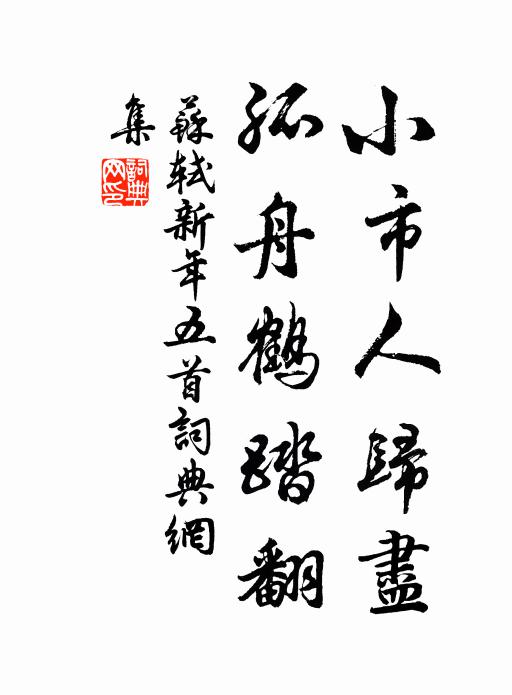 小市人歸盡
孤舟鶴踏翻
蘇軾新年五首詞典網
集
詞典
网印